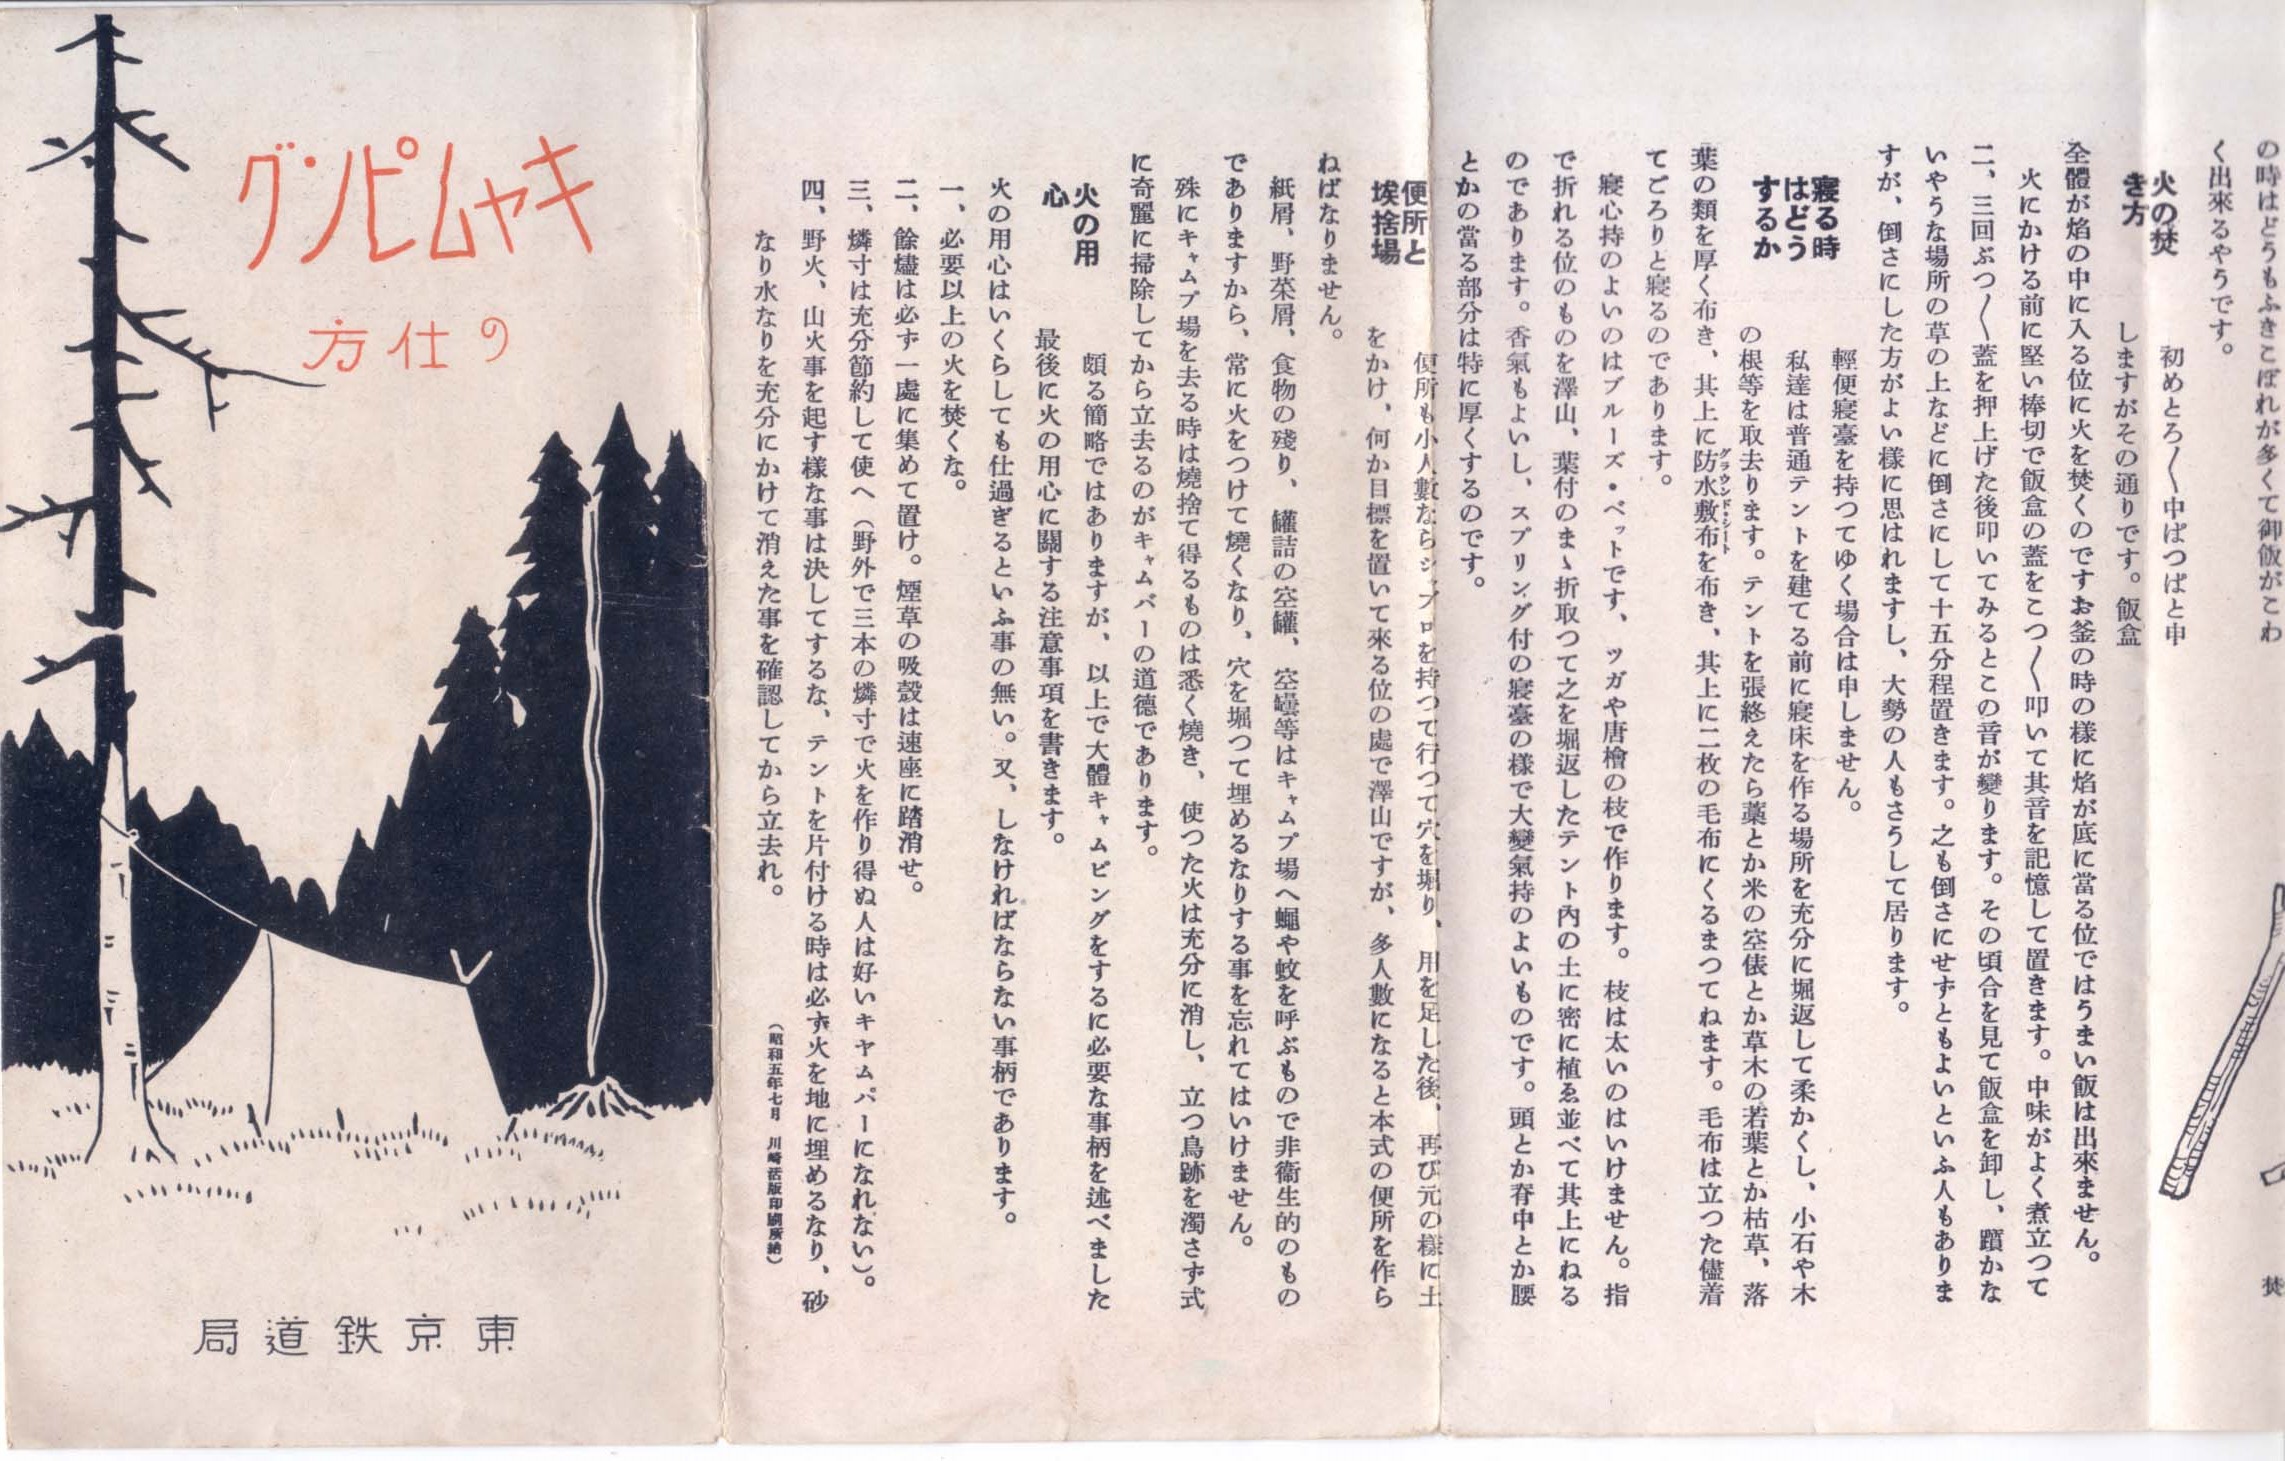 の時はどうもふきこぼれが多くて御飯がこわ
く出來るやうです。
火の焚
き方
初めとろ〱中ぱつぱと申
しますがその通りです。飯盒
全體が焔の中に入る位に火を焚くのですお釜の時の樣に焔が底に當る位ではうまい飯は出來ません。
火にかける前に堅い棒切で飯盒の蓋をこつ〱叩いて其音を記憶して置きます。中味がよく煮立つて
二、三回ぶつ〱蓋を押上げた後叩いてみるとこの音が變ります。その頃合を見て飯盒を卸し、躓かな
いやうな場所の草の上などに倒さにして十五分程置きます。之も倒さにせずともよいといふ人もありま
すが、倒さにした方がよい樣に思はれますし、大勢の人もさうして居ります。
寢る時
はどう
するか
輕便寢臺を持つてゆく場合は申しません。
私達は普通テントを建てる前に寢床を作る場所を充分に堀返して柔かくし、小石や木
の根等を取去ります。テントを張終えたら藁とか米の空俵とか草木の若葉とか枯草、落
葉の類を厚く布き、其上に防水敷布を布き、其上に二枚の毛布にくるまつてねます。毛布は立つた儘着
グラウンド・シート
てごろりと寢るのであります。
寢心持のよいのはブルーズ・ベットです、ツガや唐檜の枝で作ります。枝は太いのはいけません。指
で折れる位のものを澤山、葉付のまゝ折取つて之を堀返したテント內の土に密に植ゑ並べて其上にねる
のであります。香氣もよいし、スプリング付の寢臺の樣で大變氣持のよいものです。頭とか脊中とか腰
とかの當る部分は特に厚くするのです。
便所と
埃捨場
便所も小人數ならシャブロを持つて行つて穴を堀り、用を足した後、再び元の樣に土
をかけ、何か目標を置いて來る位の處で澤山ですが、多人數になると本式の便所を作ら
ねばなりません。
紙屑、野菜屑、食物の殘り、罐詰の空罐、空罎等はキャムプ場へ蠅や蚊を呼ぶもので非衞生的のもの
でありますから、常に火をつけて燒くなり、穴を堀つて埋めるなりする事を忘れてはいけません。
殊にキャムプ場を去る時は燒捨て得るものは悉く燒き、使つた火は充分に消し、立つ鳥跡を濁さず式
に奇麗に掃除してから立去るのがキャムパーの道德であります。
火の用
心
頗る簡略ではありますが、以上で大體キャムピングをするに必要な事柄を述べました
最後に火の用心に關する注意事項を書きます。
火の用心はいくらしても仕過ぎるといふ事の無い。又、しなければならない事柄であります。
一、必要以上の火を焚くな。
二、餘燼は必ず一處に集めて置け。煙草の吸殼は速座に踏消せ。
三、燐寸は充分節約して使へ（野外で三本の燐寸で火を作り得ぬ人は好いキヤムパーになれない）。
四、野火、山火事を起す樣な事は決してするな、テントを片付ける時は必ず火を地に埋めるなり、砂
なり水なりを充分にかけて消えた事を確認してから立去れ。
（昭和五年七月　川崎活版印刷所納）
キャムピング
の仕方
東京鉄道局
焚